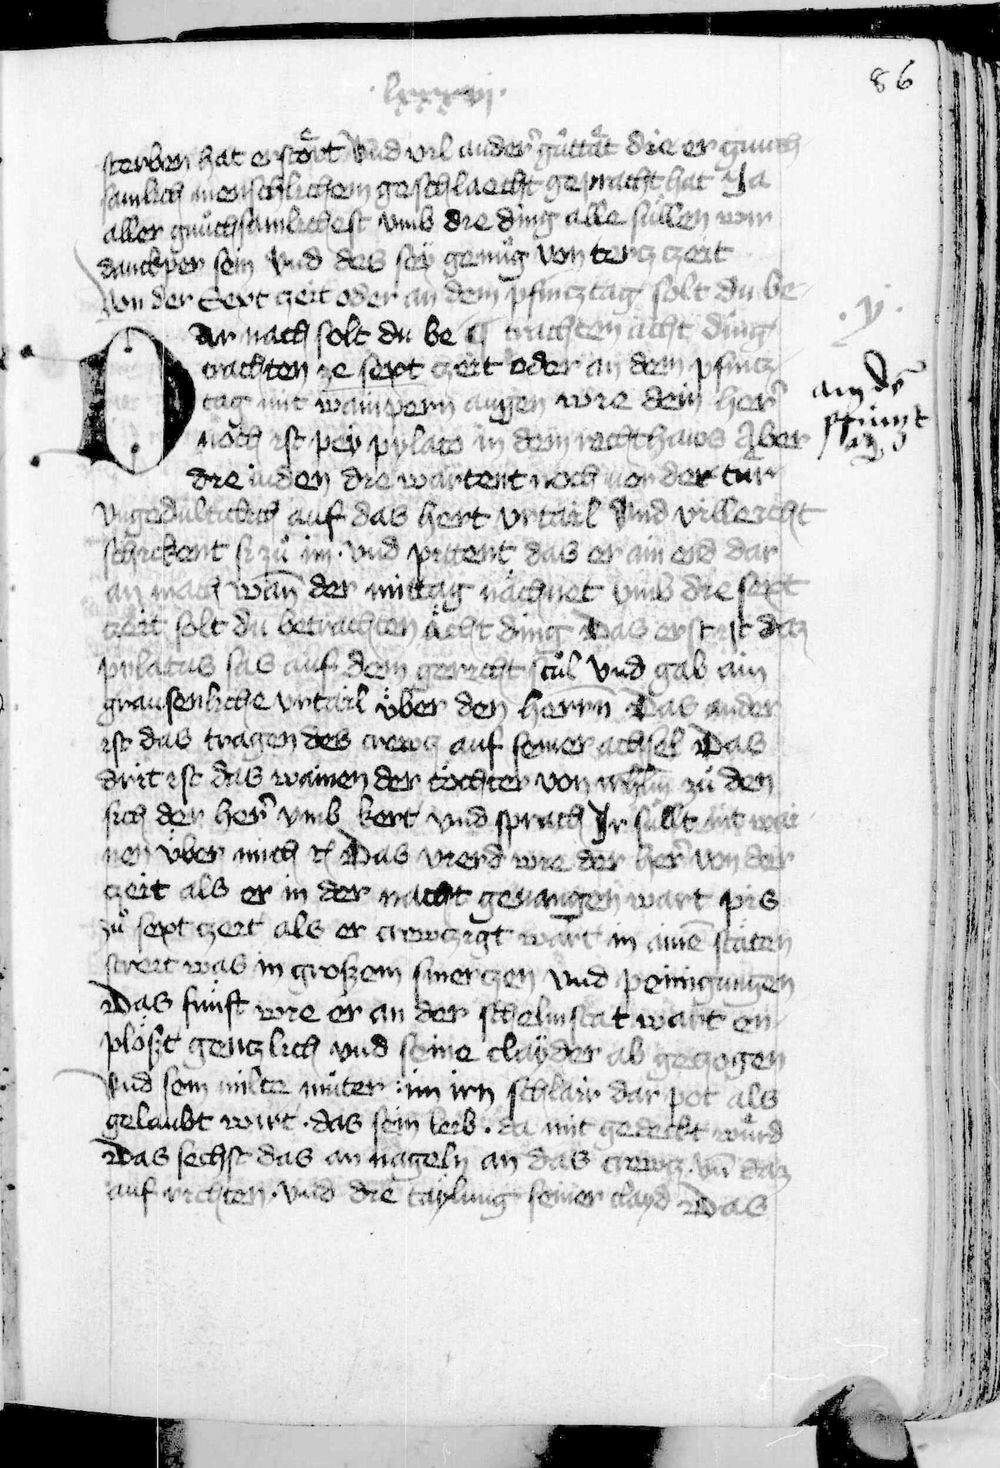 86
·lxxxvj·
sterben hat erstört Vnd vil ander gůttät die er gnuch
samlich menschlichem geschlaecht gemacht hat Ja
aller gnuchsamlichest vmb die ding alle süllen wir
danckper sein Vnd des sey genůg von tercz czeit
Von der Sext czeit oder an dem pfincztag solt du be
Dar nach solt du be ¶ trachten acht ding
trachten ze sext czeit oder an dem pfincz
tag mit wainpern augen wie dein her
noch ist pey pylato in dem rechthaws Aber
die iuden die wartent noch vor der tür
vngedultiklich auf das hert vrtail Vnd villeicht
schickent si zů im · vnd pittent das er ain end dar
an mach wan̄ der mittag nächnet vmb die sext
czeit solt du betrachten ächt ding Das erst ist daz
pylatus sas auf dem gericht stůl vnd gab ain
grausenliche vrtail über den herrn̄ Das ander
ist das tragen des crewcz auf seiner achsel Das
drit ist das wainen der töchter von zů den
sich der her̄ vmb kert vnd sprach Ir süllt nit wai
nen über mich Das vierd wie der her̄ von der
czeit als er in der nacht geuangen wart pis
zů sext czeit als er crewczigt wart in ainē stäten
streit was in groszem smerczen vnd peinigungen
Das fünft wie er an der schelmstat wart en
plöszt genczlich vnd seine clayder ab geczogen
Vnd sein milte můter · im irn schlair dar pot als
gelaubt wirt · das sein leib · da mit gedeckt würd
Das sechst das an nageln an das crewcz · vn̄ daz
auf richten · vnd die taylung seiner clayd Das
·v·
an dē
pfincz